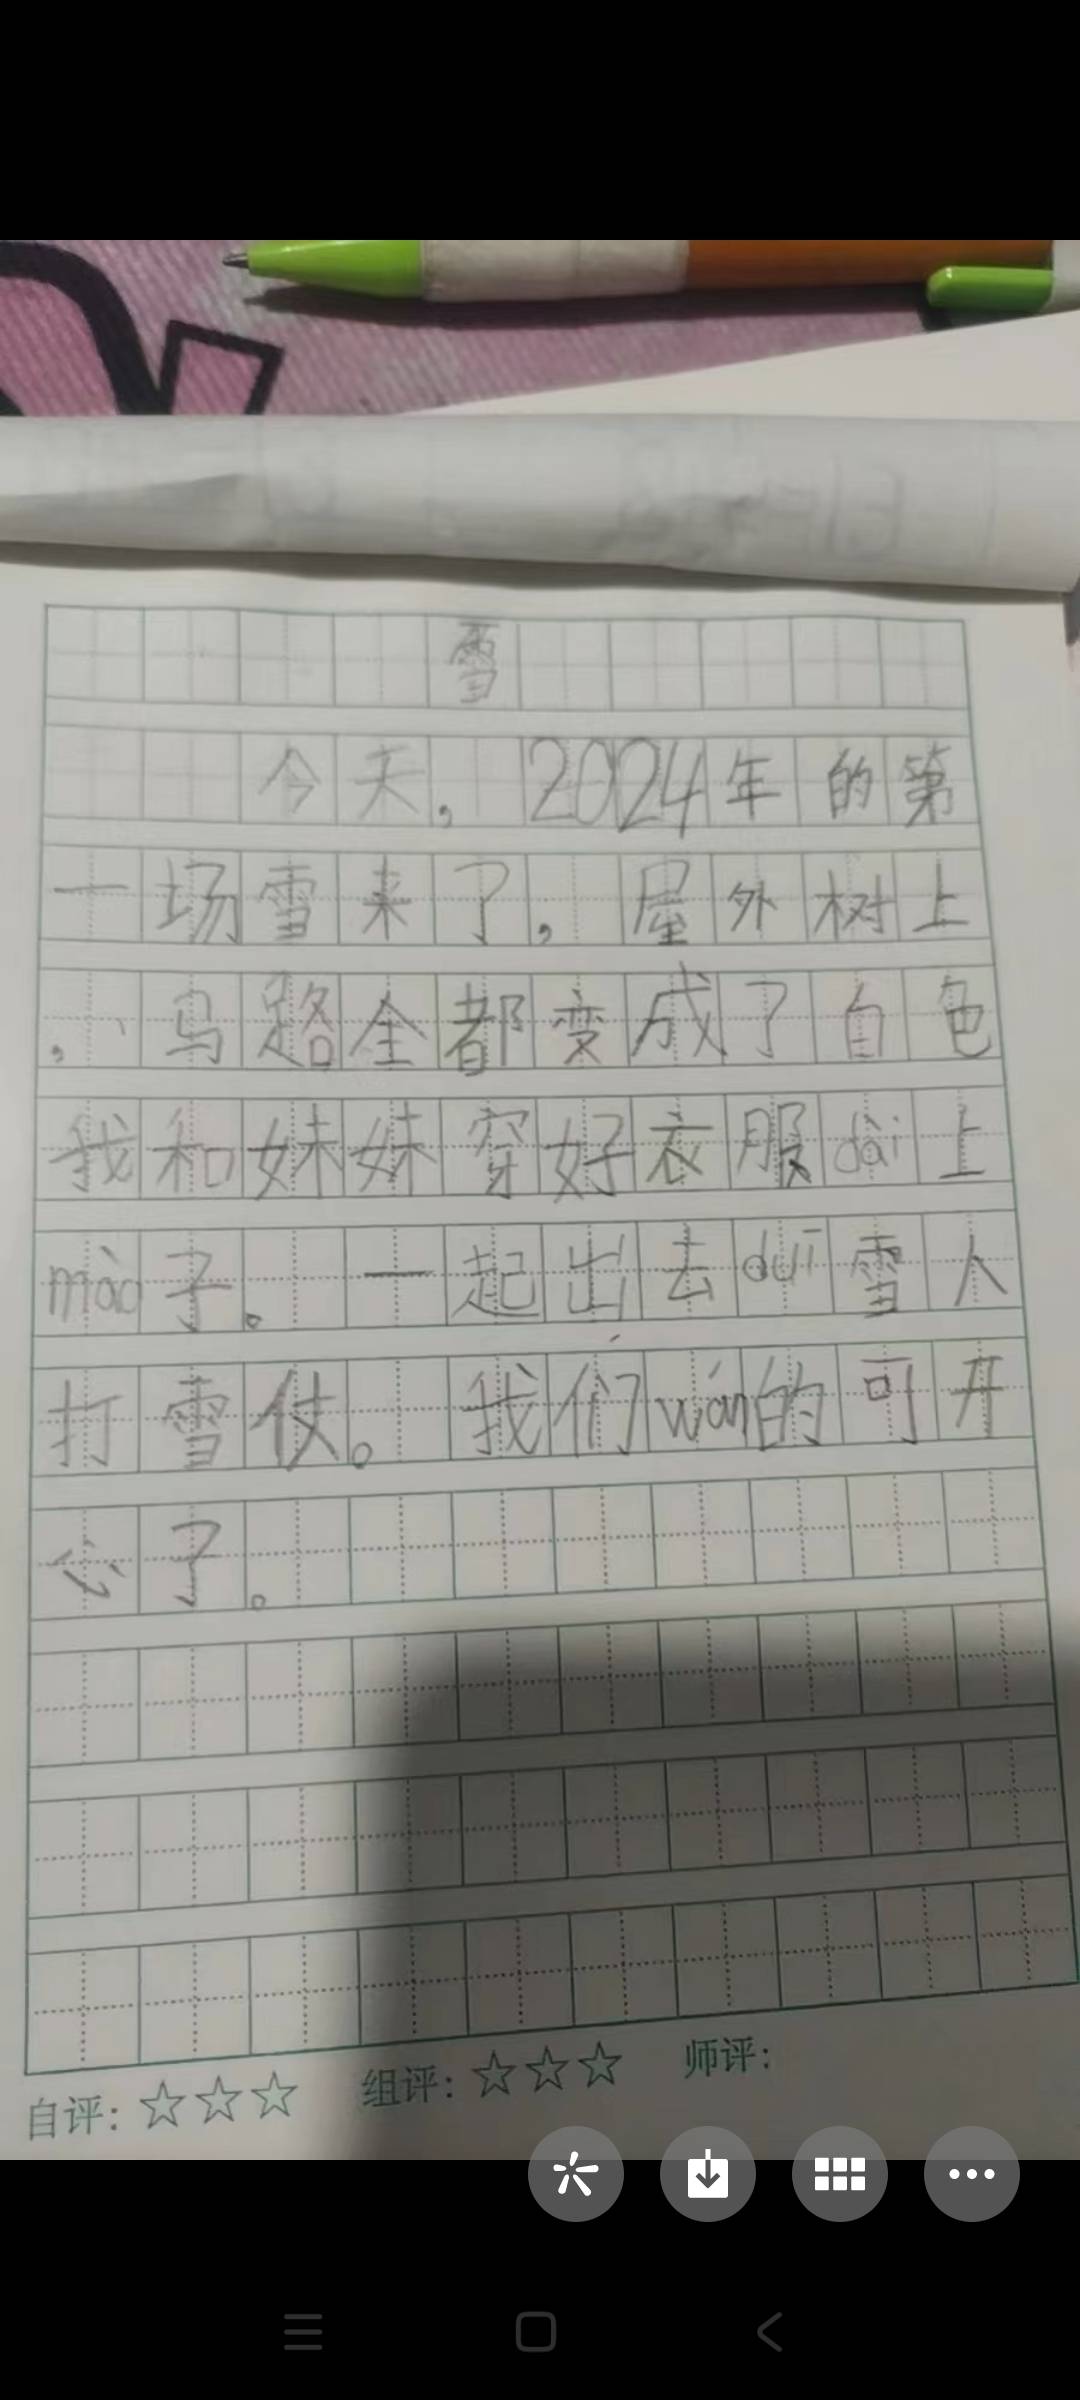 雪
今天，2024年的第
一场雪来了，屋外树上
，、马路全都变成了白色
我和妹妹穿好衣服dài上
mào子。一起出去duī雪人
打雪仗。我们wán的可开
心了。
自评：☆☆☆ 组评：☆☆☆ 师评：